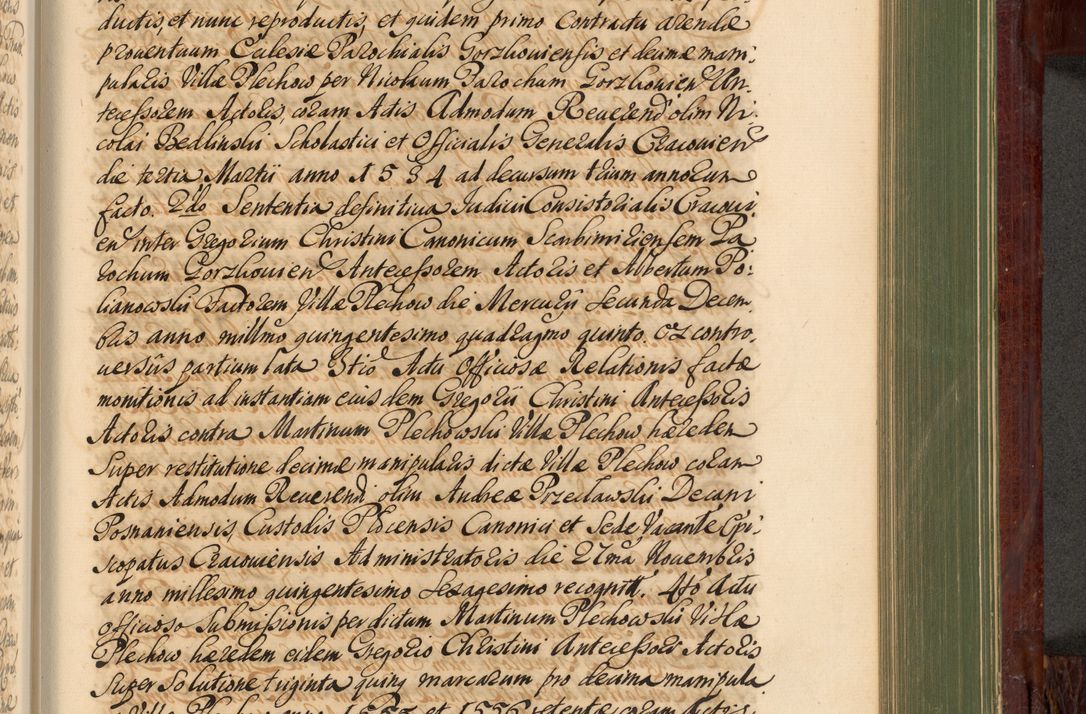 ductis, et nunc reproductis, et quidem primo Contractu arendæ
prouentuum Eclesiæ Parochialis Gorzkouiensis, et decimæ mani-
pularis Villæ Plechow per Nicolaum Parochum Gorzkouien An-
tecessorem Actoris, coram Actis Admodum Reuerend olim Ni-
colai Bedlinski Scholastici et Officialis Generalis Cracouien
die tertia Martii anno 1534 ad decursum trium annorum
facto. 2do Sententia definitiua Judicii Consistorialis Cracoui-
en inter Gregorium Christini Canonicum Scarbimiriensem Pa
rochum Gorzkouien Antecessorem Actoris et Albertum Po-
lianowski Factorem Villæ Plechow die Mercurii secunda Decem
bris anno millmo quingentesimo quadragmo quinto. ex contro-
uersiis partium lata 3tio Actu Officiosæ Relationis factæ
monitionis ad instantiam eius dem Gregorii Christini Antecessoris
Actoris contra Martinum Plechowski Villæ Plechow hæredem
super restitutione decimæ manipularis dictæ Villæ Plechow coram
Actis Admodum Reuerend olim Andreæ Przecławski Decani
Posnaniensis, Custodis Plocensis Canonici et Sede Vacante Epi-
scopatus Cracouiensis Administratoris die 21ma Nouembris
anno millesimo quingentesimo sexagesimo recognitt. 4to Actu
officioso submissionis per dictum Martinum Plechowski Villæ
Plechow hæredem eidem Gregorio Christini Antecessori Actoris
super solutione triginta quinq marcarum pro decima manipula
Villæ Plechow anno 1555 et 1556 retentæ coram Actis